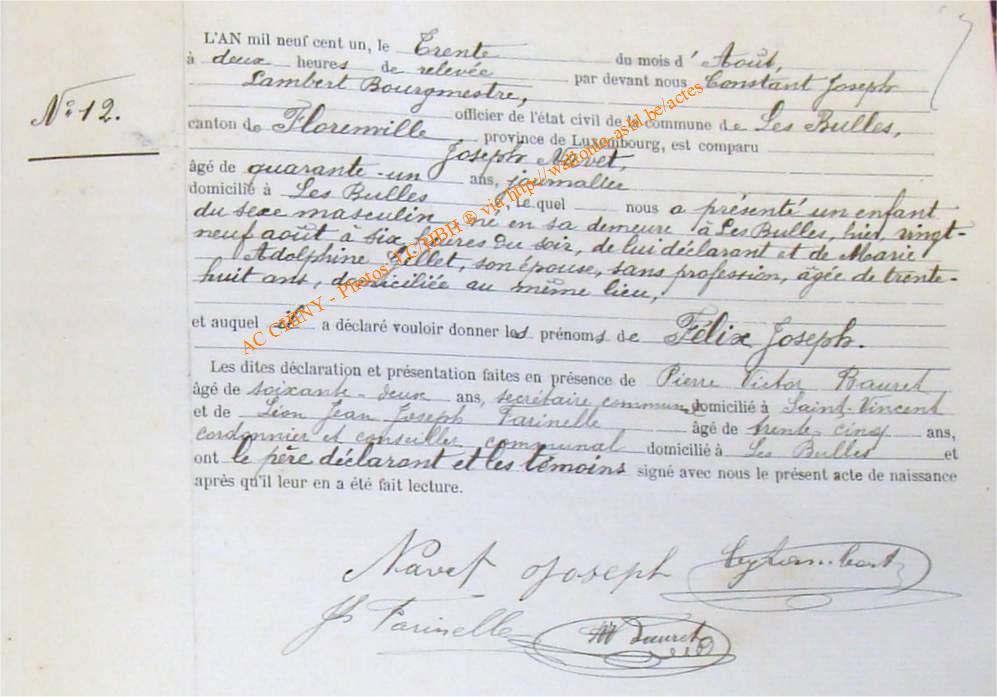 L'AN mil neuf cent un, le Trente du mois d' Août,
à deux heures de relevée par devant nous Constant Joseph
Lambert Bourgmestre,
officier de l'état civil de la commune de Les Bulles,
canton de Florenville, province de Luxembourg, est comparu
N° 12.
Joseph Navet,
âgé de quarante-un ans, journalier
domicilié à Les Bulles, le quel nous a présenté un enfant
du sexe masculin né en sa demeure à Les Bulles, hier, vingt-
neuf août à six heures du soir, de lui déclarant et de Marie
Adolphine, son épouse, sans profession, âgée de trente-
huit ans, domiciliée au même lieu,
et auquel il a déclaré vouloir donner les prénoms de Félix Joseph.
Les dites déclaration et présentation faites en présence de Pierre Victor Bauret
âgé de soixante-deux ans, secrétaire communal domicilié à Saint-Vincent
et de Léon Jean Joseph Farinelle âgé de trente-cinq ans,
cordonnier et conseiller communal domicilié à Les Bulles et
ont le père déclarant et les témoins signé avec nous le présent acte de naissance
après qu'il leur en a été fait lecture.
Navet Joseph
Farinelle Bauret
AC CHINY - Photos: ® via http://wallonia-asbl.be/actes